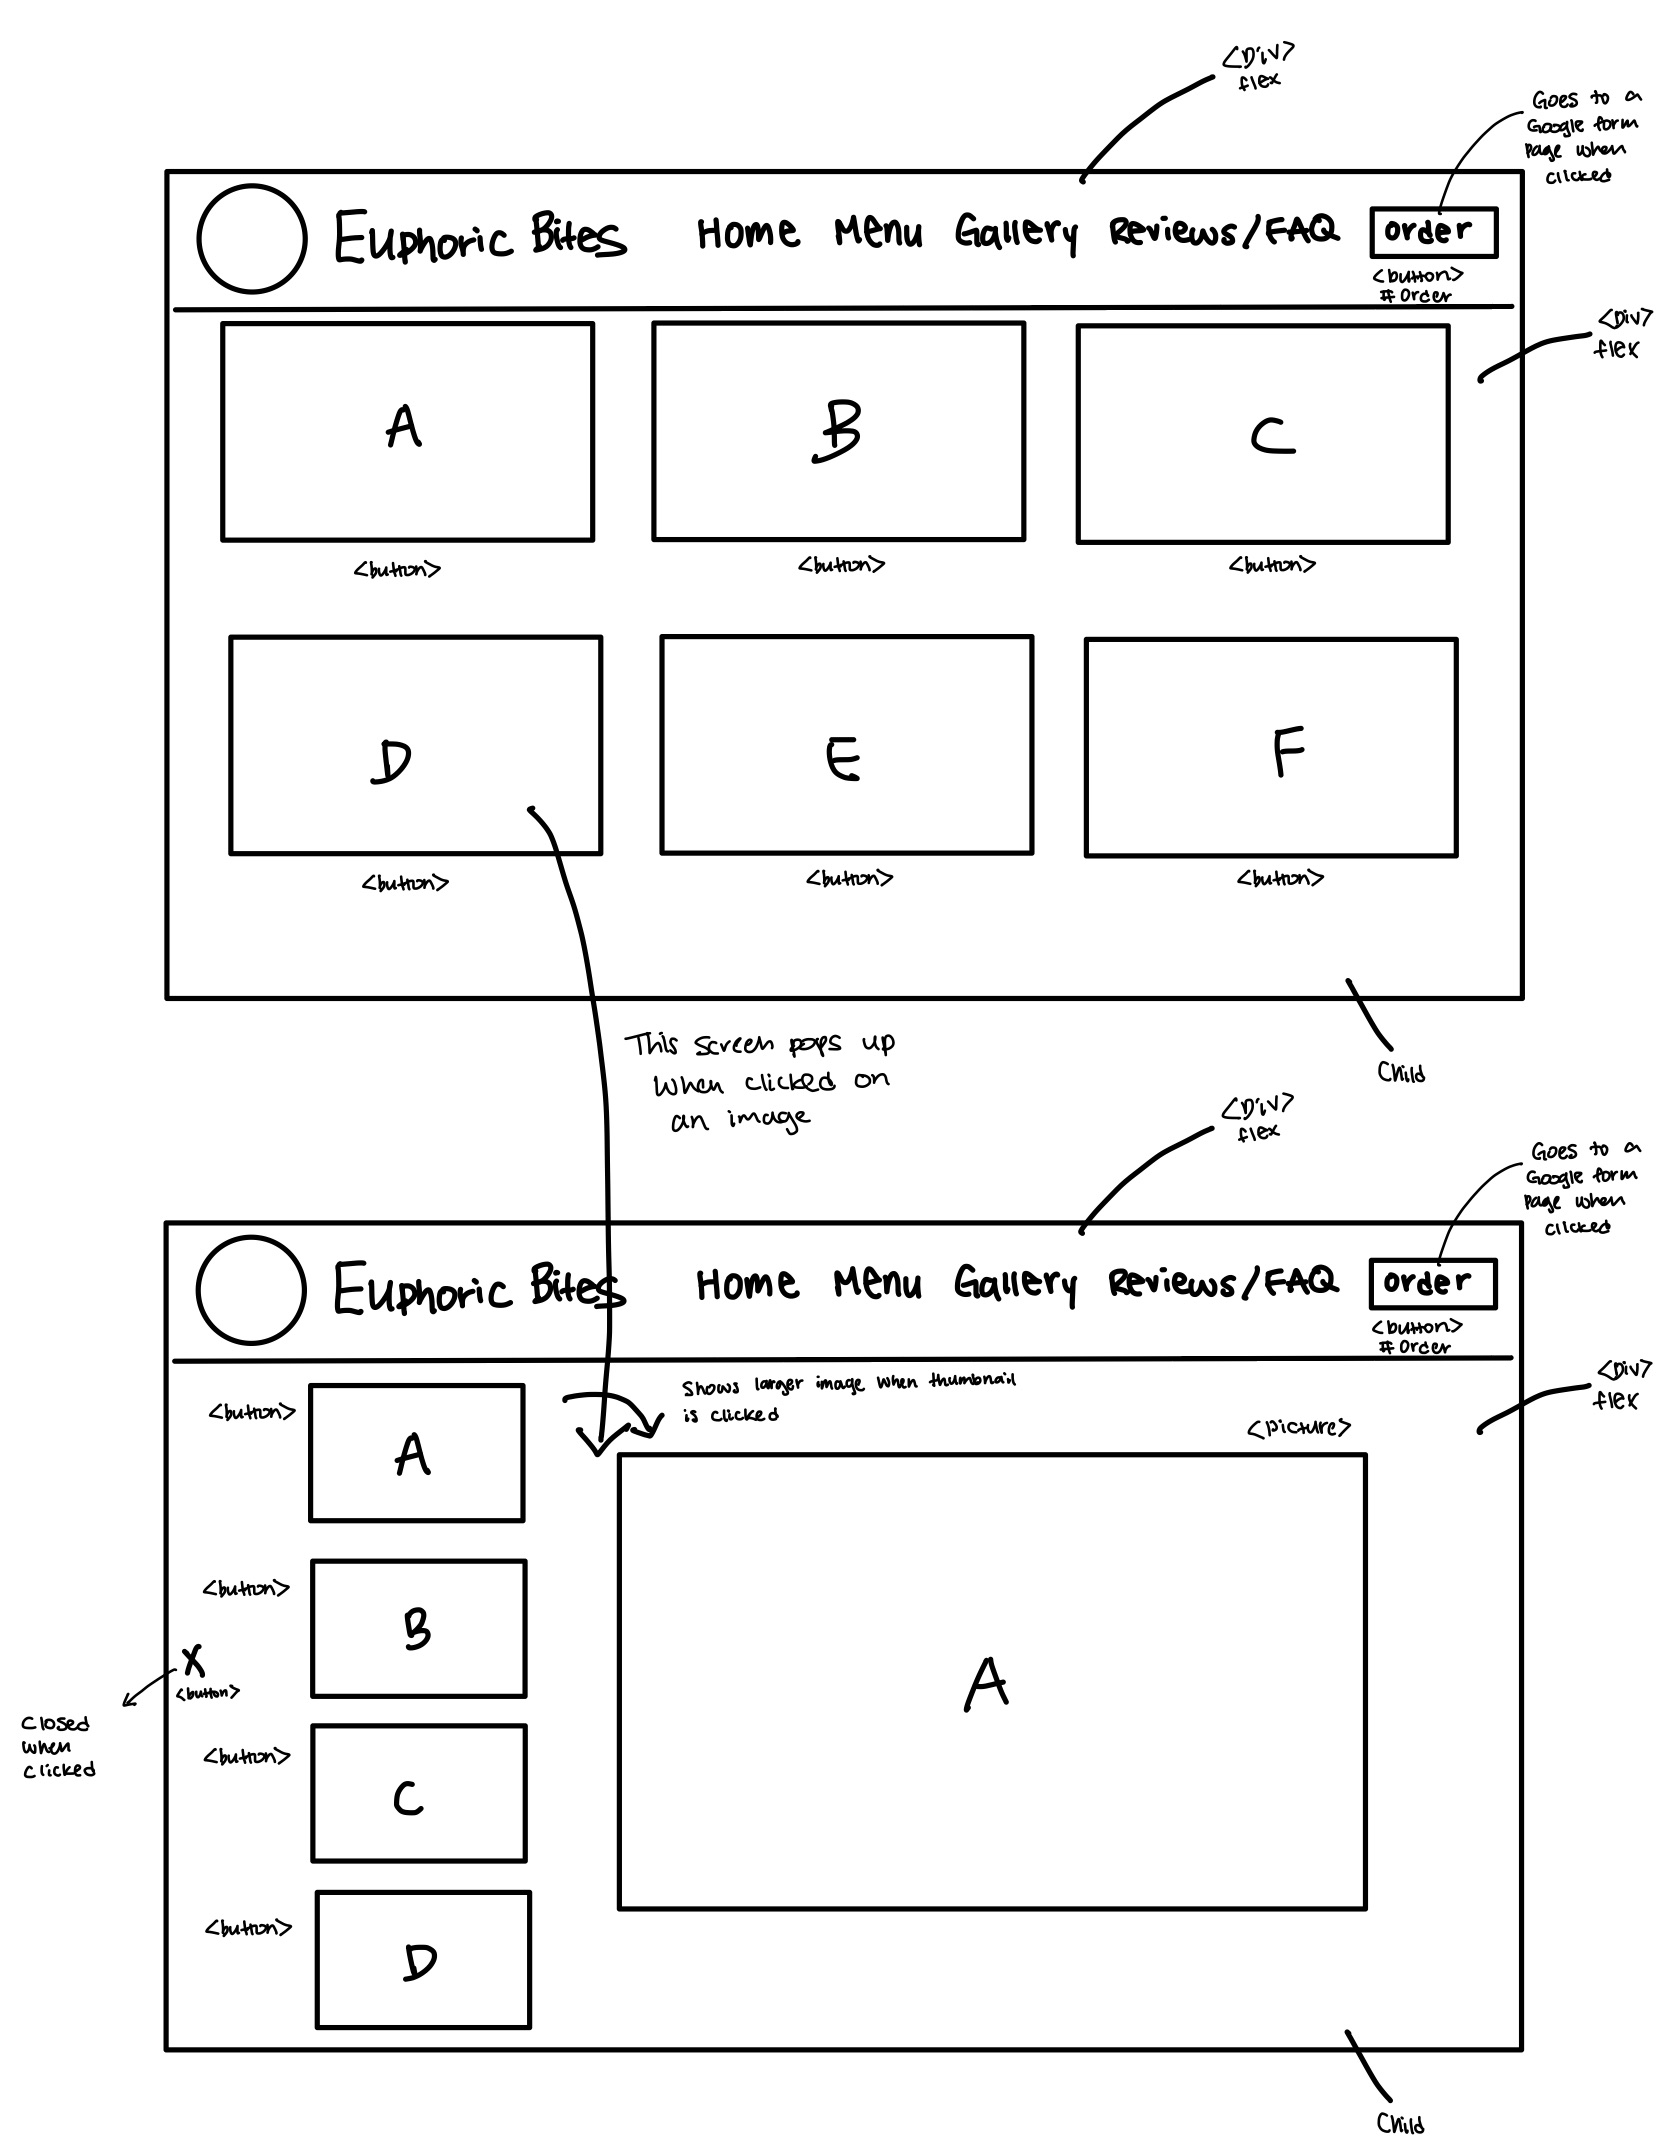 <Div>
flex
Goes to a
Google form
page when
clicked
Euphoric Bites Home Menu Gallery Reviews/FAQ order
<button>
#Order
<Div>
flex
A B C
<button> <button> <button>
D E F
<button> <button> <button>
This screen pops up
when clicked on
an image
Child
<Div>
flex
Goes to a
Google form
page when
clicked
Euphoric Bites Home Menu Gallery Reviews/FAQ order
<button>
#Order
<Div>
flex
Shows larger image when thumbnail
is clicked
<picture>
<button> A
<button> B
X
<button>
Closed
when
clicked
<button> C
<button> D
A
Child